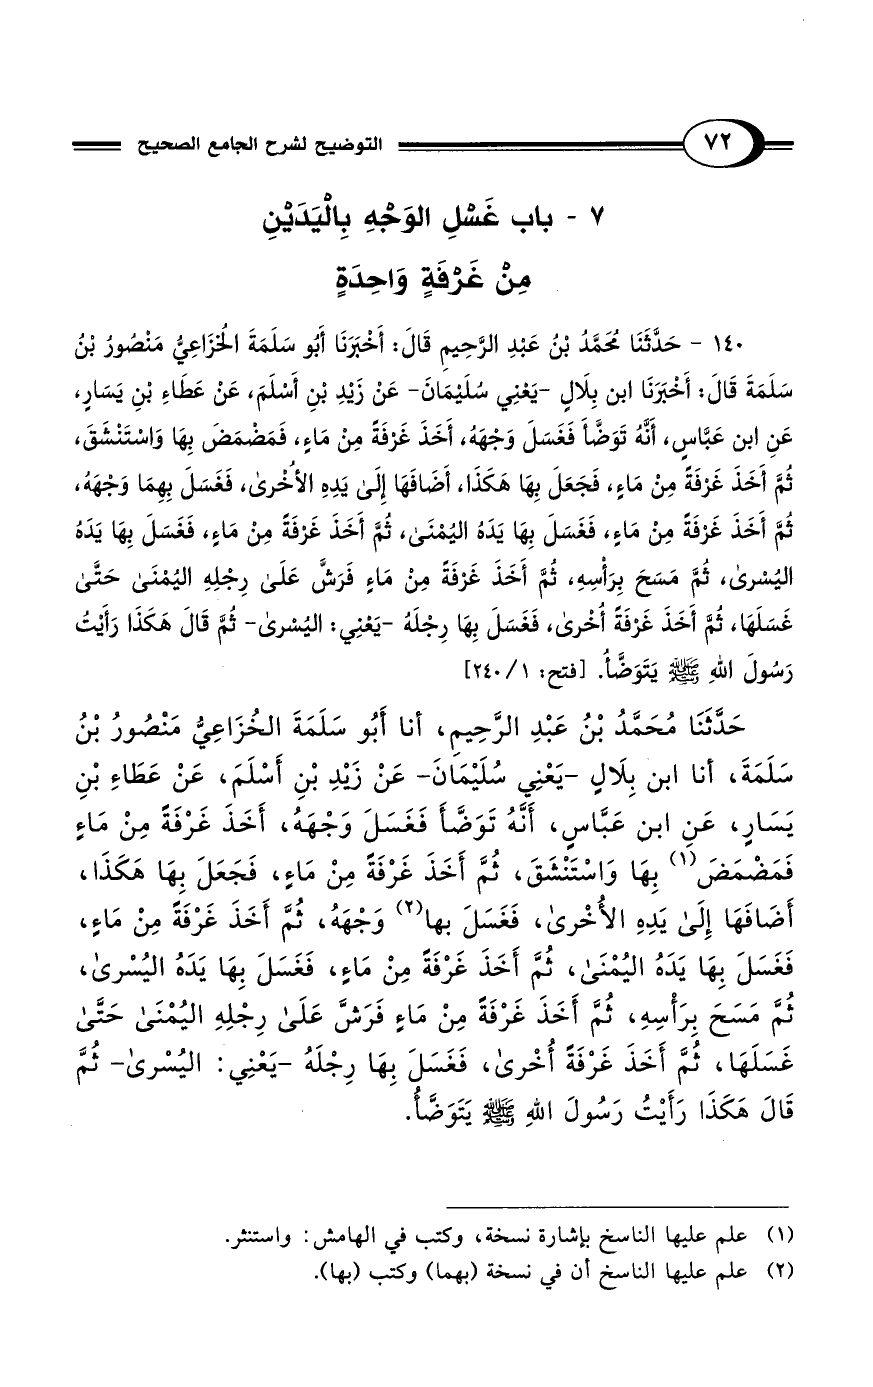 ٧٢ التوضيح لشرح الجامع الصحيح
٧ - باب غَسْلِ الوَجْهِ بِالْيَدَيْنِ
مِنْ غَرْفَةٍ وَاحِدَةٍ
١٤٠ - حَدَّثَنَا مُحَمَّدُ بْنُ عَبْدِ الرَّحِيمِ قَالَ: أَخْبَرَنَا أَبُو سَلَمَةَ الخُزَاعِيُّ مَنْصُورُ بْنُ
سَلَمَةَ قَالَ: أَخْبَرَنَا ابن بِلَالٍ -يَعْنِي سُلَيْمَانَ- عَنْ زَيْدِ بْنِ أَسْلَمَ، عَنْ عَطَاءِ بْنِ يَسَارٍ،
عَنِ ابن عَبَّاسٍ، أَنَّهُ تَوَضَّأَ فَغَسَلَ وَجْهَهُ، أَخَذَ غَرْفَةً مِنْ مَاءٍ، فَمَضْمَضَ بِهَا وَاسْتَنْشَقَ،
ثُمَّ أَخَذَ غَرْفَةً مِنْ مَاءٍ، فَجَعَلَ بِهَا هَكَذَا، أَضَافَهَا إِلَىٰ يَدِهِ الأُخْرىٰ، فَغَسَلَ بِهِمَا وَجْهَهُ،
ثُمَّ أَخَذَ غَرْفَةً مِنْ مَاءٍ، فَغَسَلَ بِهَا يَدَهُ اليُمْنَىٰ، ثُمَّ أَخَذَ غَرْفَةً مِنْ مَاءٍ، فَغَسَلَ بِهَا يَدَهُ
اليُسْرىٰ، ثُمَّ مَسَحَ بِرَأْسِهِ، ثُمَّ أَخَذَ غَرْفَةً مِنْ مَاءٍ فَرَشَّ عَلَىٰ رِجْلِهِ اليُمْنَىٰ حَتَّىٰ
غَسَلَهَا، ثُمَّ أَخَذَ غَرْفَةً أُخْرىٰ، فَغَسَلَ بِهَا رِجْلَهُ -يَعْنِي: اليُسْرىٰ- ثُمَّ قَالَ هَكَذَا رَأَيْتُ
رَسُولَ اللهِ ﷺ يَتَوَضَّأُ. [فتح: ١/ ٢٤٠]
حَدَّثَنَا مُحَمَّدُ بْنُ عَبْدِ الرَّحِيمِ، أنا أَبُو سَلَمَةَ الخُزَاعِيُّ مَنْصُورُ بْنُ
سَلَمَةَ، أنا ابن بِلَالٍ -يَعْنِي سُلَيْمَانَ- عَنْ زَيْدِ بْنِ أَسْلَمَ، عَنْ عَطَاءِ بْنِ
يَسَارٍ، عَنِ ابن عَبَّاسٍ، أَنَّهُ تَوَضَّأَ فَغَسَلَ وَجْهَهُ، أَخَذَ غَرْفَةً مِنْ مَاءٍ
فَمَضْمَضَ(١) بِهَا وَاسْتَنْشَقَ، ثُمَّ أَخَذَ غَرْفَةً مِنْ مَاءٍ، فَجَعَلَ بِهَا هَكَذَا،
أَضَافَهَا إِلَىٰ يَدِهِ الأُخْرىٰ، فَغَسَلَ بها(٢) وَجْهَهُ، ثُمَّ أَخَذَ غَرْفَةً مِنْ مَاءٍ،
فَغَسَلَ بِهَا يَدَهُ اليُمْنَىٰ، ثُمَّ أَخَذَ غَرْفَةً مِنْ مَاءٍ، فَغَسَلَ بِهَا يَدَهُ اليُسْرىٰ،
ثُمَّ مَسَحَ بِرَأْسِهِ، ثُمَّ أَخَذَ غَرْفَةً مِنْ مَاءٍ فَرَشَّ عَلَىٰ رِجْلِهِ اليُمْنَىٰ حَتَّىٰ
غَسَلَهَا، ثُمَّ أَخَذَ غَرْفَةً أُخْرىٰ، فَغَسَلَ بِهَا رِجْلَهُ -يَعْنِي: اليُسْرىٰ- ثُمَّ
قَالَ هَكَذَا رَأَيْتُ رَسُولَ اللهِ ﷺ يَتَوَضَّأُ.
(١) علم عليها الناسخ بإشارة نسخة، وكتب في الهامش: واستنثر.
(٢) علم عليها الناسخ أن في نسخة (بهما) وكتب (بها).